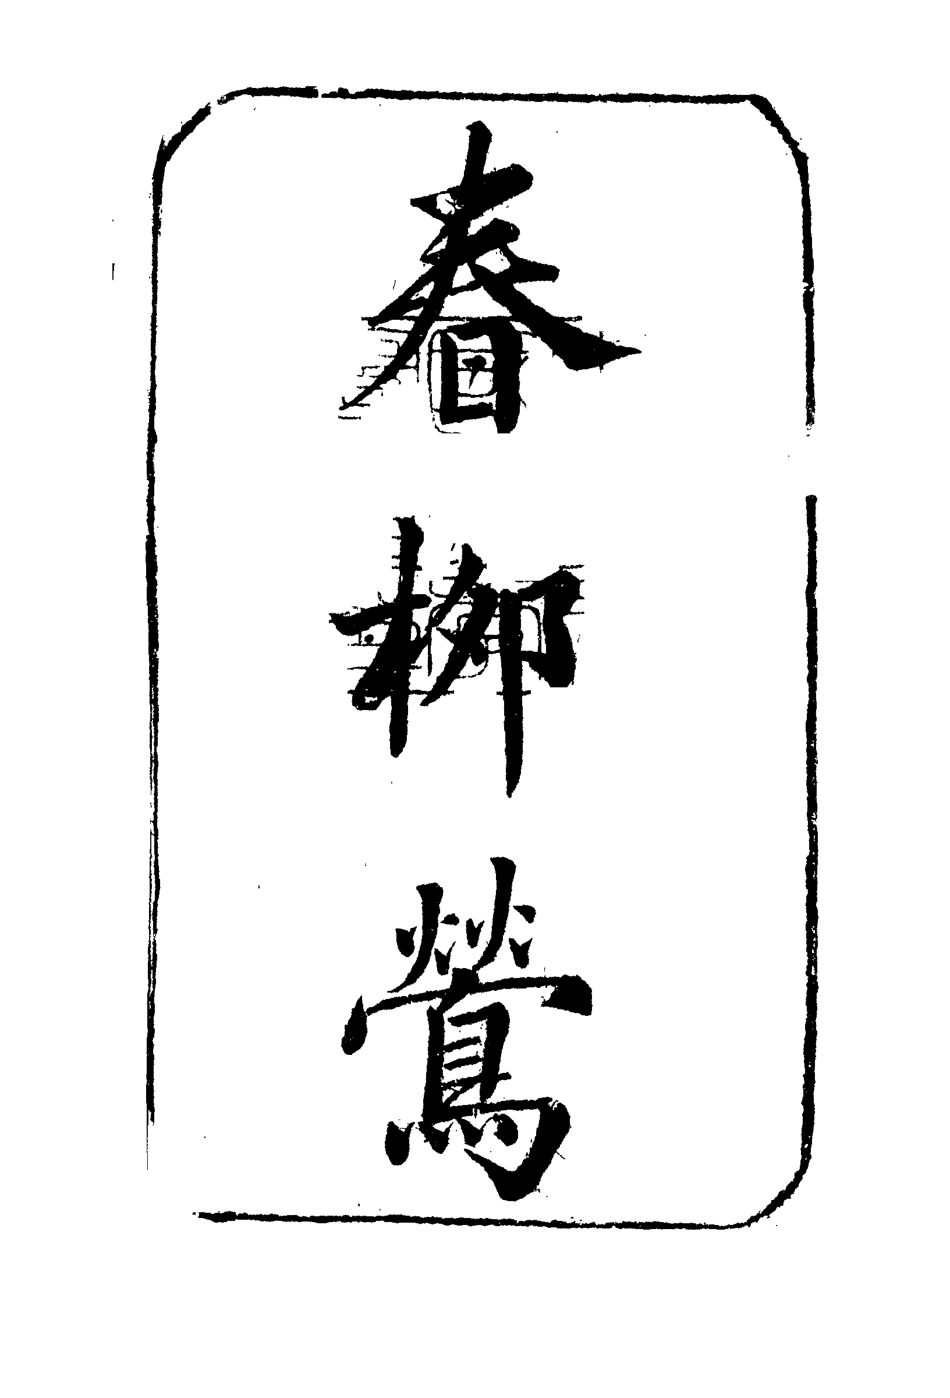 春柳鶯